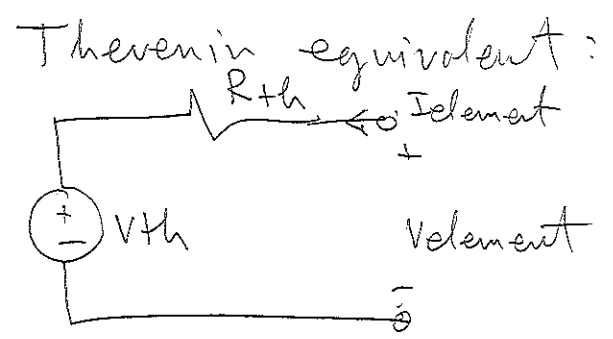 Thevenin equivalent:
Rth
Ielement
+
+
-
Vth
Velement
-